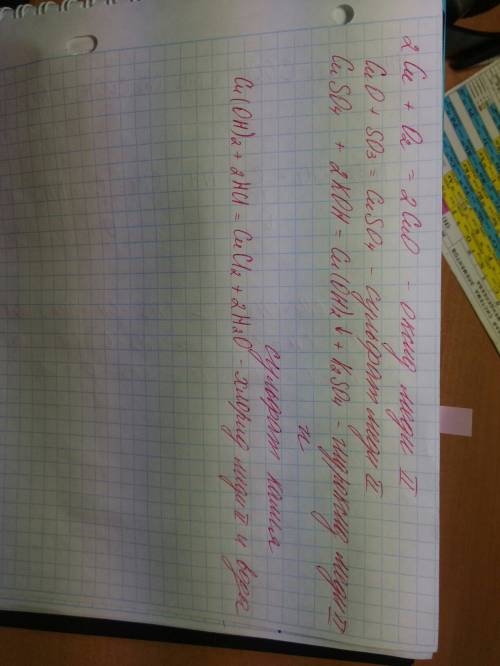 2Cu + O₂ = 2CuO - оксид меди II
CuO + SO₃ = CuSO₄ - сульфат меди II
CuSO₄ + 2KOH = Cu(OH)₂↓ + K₂SO₄ - гидроксид меди II
и
сульфат калия
Cu(OH)₂ + 2HCl = CuCl₂ + 2H₂O - хлорид меди II и вода